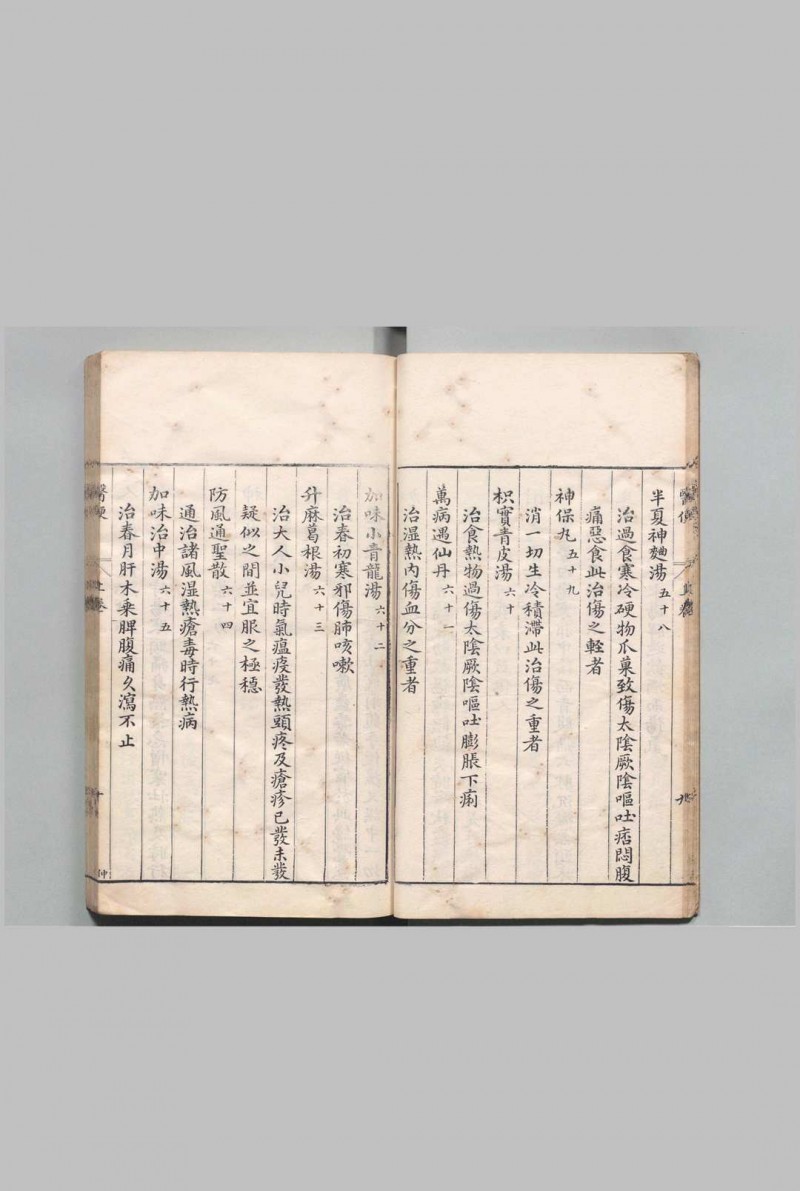 半夏神麯湯 五十八
治過食寒冷硬物爪菓致傷太陰厥陰嘔吐痞悶腹
痛惡食此治傷之輕者
神保丸 五十九
消一切生冷積滯此治傷之重者
枳實青皮湯 六十
治食熱物過傷太陰厥陰嘔吐膨脹下痢
萬病遇仙丹 六十一
治湿熱內傷血分之重者
加味小青龍湯 六十二
治春初寒邪傷肺咳嗽
升麻葛根湯 六十三
治大人小兒時氣瘟疫發熱頭疼及瘡疹已發未發
疑似之間並宜服之極穩
防風通聖散 六十四
通治諸風湿熱瘡毒時行熱病
加味治中湯 六十五
治春月肝木乘脾腹痛久瀉不止
醫便
上卷
十
仲